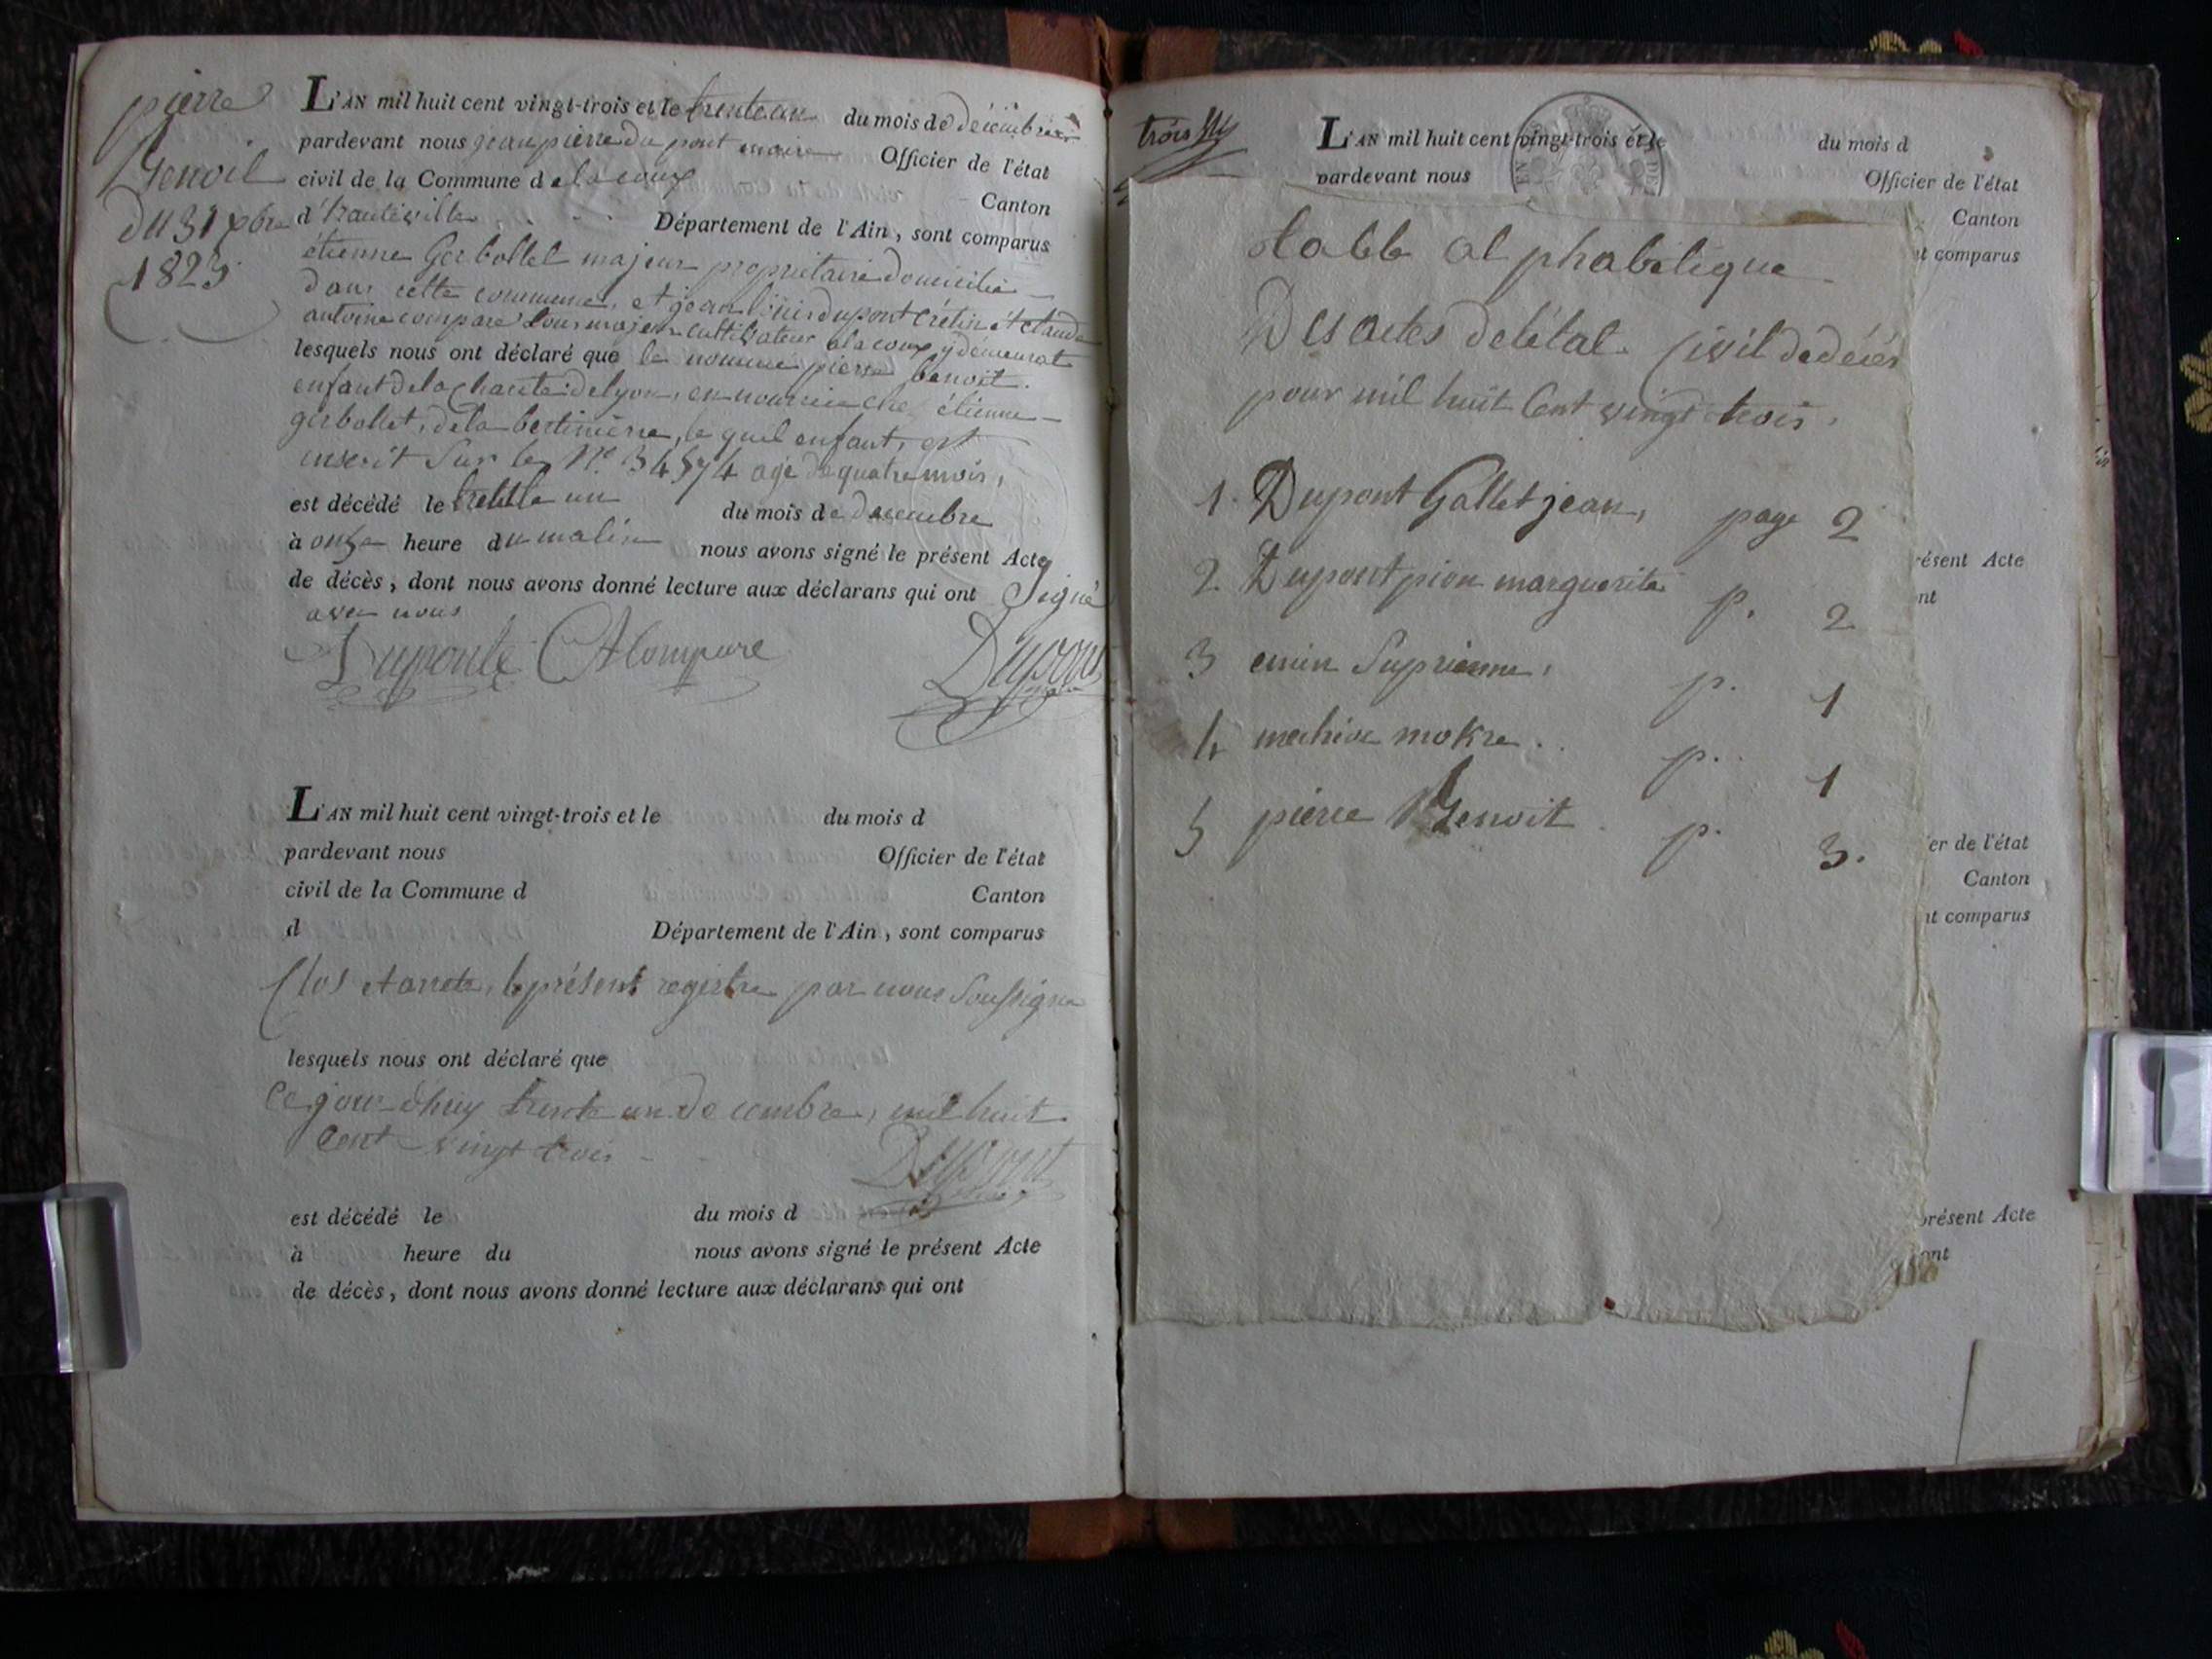 pierre
Benoit
du 31 xbre
1823
L'AN mil huit cent vingt-trois et le trente un du mois de décembre
pardevant nous jean pierre du pont maire Officier de l'état
civil de la Commune d elacoux Canton
d'hauteville Département de l'Ain, sont comparus
étienne Gerbollet majeur propriétaire domicilié
dans cette commune, et jean louis dupont crétin et claude
antoine compare tous majeur cultivateur alacoux y demeurat
lesquels nous ont déclaré que le nommé pierre benoit.
enfant dela charité delyon, en nourrice chez étienne
gerbollet, dela bertinière, le quel enfant, est
inscrit sur le N° 34574 agé de quatre mois,
est décédé le trentte un du mois de decembre
à onze heure du matin nous avons signé le présent Acte
de décès, dont nous avons donné lecture aux déclarans qui ont Signé
avec nous
Duponte CA Compare Dupont
L'AN mil huit cent vingt-trois et le du mois d
pardevant nous Officier de l'état
civil de la Commune d Canton
d Département de l'Ain, sont comparus
Clos et arrete, le présent registre par nous soussigné
lesquels nous ont déclaré que
Ce jour dhuy trente un decembre, mil huit
cent vingt trois Dupont
est décédé le du mois d
à heure du nous avons signé le présent Acte
de décès, dont nous avons donné lecture aux déclarans qui ont
trois
L'AN mil huit cent vingt-trois et le du mois d
pardevant nous Officier de l'état
Canton
nt comparus
table alphabetique
Des actes de létat civil de décés
pour mil huit Cent vingt trois,
1. Dupont Gallet jean, page 2
2. Dupont pion marguerite p. 2
3 emin Suprienne, p. 1
4 p. 1
5 pierre Benoit p. 3.
résent Acte
nt
er de l'état
Canton
nt comparus
présent Acte
ont